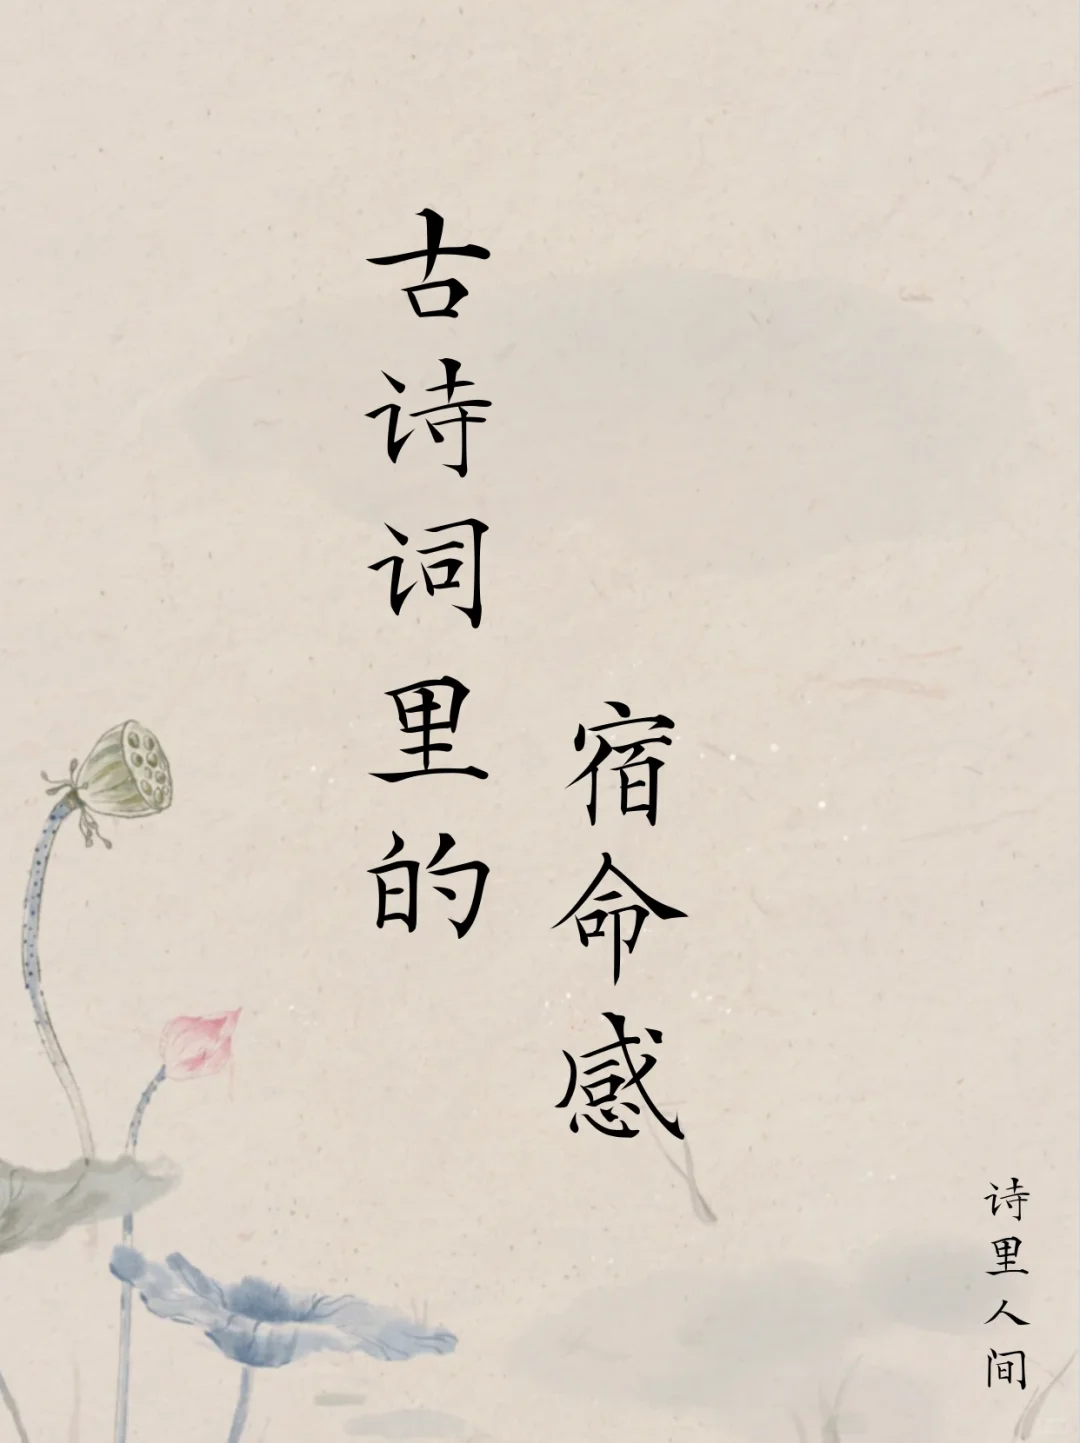 古诗词里的
宿命感
诗里人间